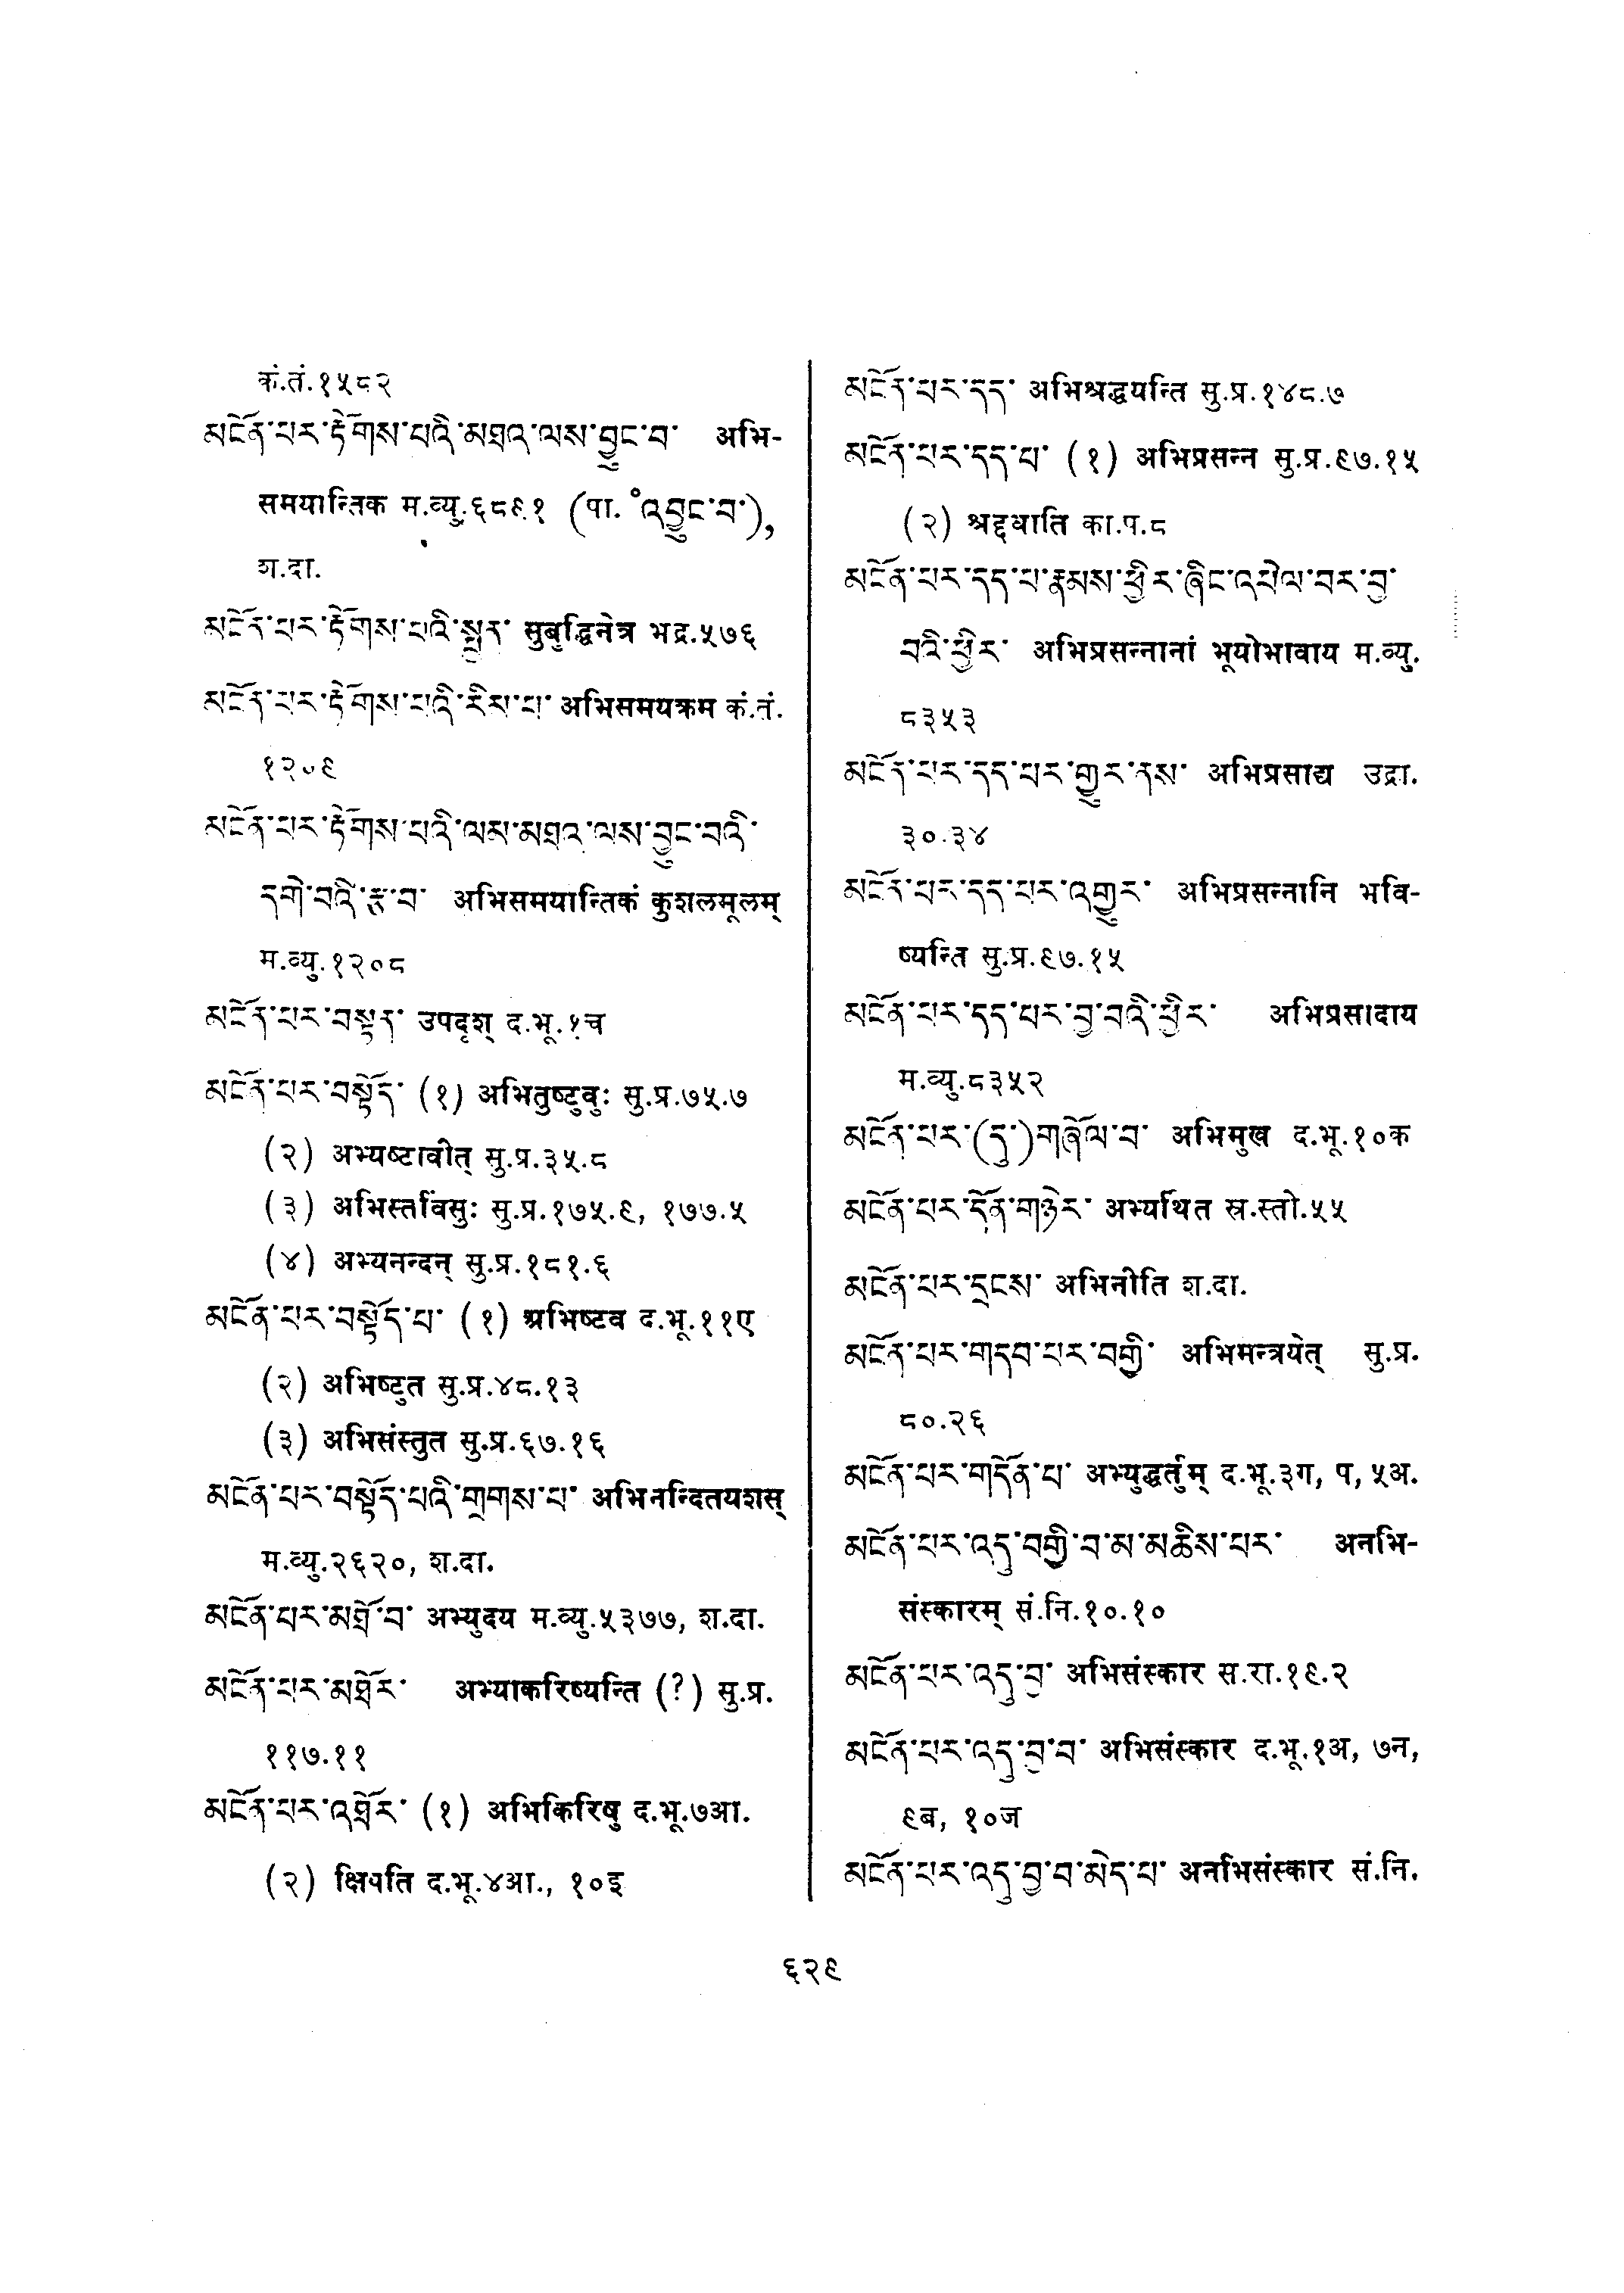 कं.तं.१५८२
མངོན་པར་རྟོགས་པའི་མཐའ་ལས་བྱུང་བ་ अभि-
समयान्तिक म.व्यु.६८९१ (पा. ॰འབྱུང་བ་),
श.दा.
མངོན་པར་རྟོགས་པའི་སྤྱན་ सुबुद्धिनेत्र भद्र.५७६
མངོན་པར་རྟོགས་པའི་རིམ་པ་ अभिसमयक्रम कं.तं.
१२०९
མངོན་པར་རྟོགས་པའི་ལས་མཐའ་ལས་བྱུང་བའི་
དགེ་བའི་རྩ་བ་ अभिसमयान्तिकं कुशलमूलम्
म.व्यु.१२०८
མངོན་པར་བསྟན་ उपदृश् द.भू.१च
མངོན་པར་བསྟོད་ (१) अभितुष्टुवुः सु.प्र.७५.७
(२) अभ्यष्टावीत् सु.प्र.३५.८
(३) अभिस्तविंसुः सु.प्र.१७५.९, १७७.५
(४) अभ्यनन्दन् सु.प्र.१८१.६
མངོན་པར་བསྟོད་པ་ (१) अभिष्टव द.भू.११ए
(२) अभिष्टुत सु.प्र.४८.१३
(३) अभिसंस्तुत सु.प्र.६७.१६
མངོན་པར་བསྟོད་པའི་གྲགས་པ་ अभिनन्दितयशस्
म.व्यु.२६२०, श.दा.
མངོན་པར་མཐོ་བ་ अभ्युदय म.व्यु.५३७७, श.दा.
མངོན་པར་མཐོར་ अभ्याकरिष्यन्ति (?) सु.प्र.
११७.११
མངོན་པར་འཐོར་ (१) अभिकिरिषु द.भू.७आ.
(२) क्षिपति द.भू.४आ., १०इ
མངོན་པར་དད་ अभिश्रद्धयन्ति सु.प्र.१४८.७
མངོན་པར་དད་པ་ (१) अभिप्रसन्न सु.प्र.९७.१५
(२) श्रद्दधाति का.प.८
མངོན་པར་དད་པ་རྣམས་ཕྱིར་ཞིང་འཕེལ་བར་བྱ་
བའི་ཕྱིར་ अभिप्रसन्नानां भूयोभावाय म.व्यु.
८३५३
མངོན་པར་དད་པར་གྱུར་ནས་ अभिप्रसाद्य उद्रा.
३०.३४
མངོན་པར་དད་པར་འགྱུར་ अभिप्रसन्नानि भवि-
ष्यन्ति सु.प्र.९७.१५
མངོན་པར་དད་པར་བྱ་བའི་ཕྱིར་ अभिप्रसादाय
म.व्यु.८३५२
མངོན་པར་(དུ་)གཞོལ་བ་ अभिमुख द.भू.१०क
མངོན་པར་དོན་གཉེར་ अभ्यर्थित स्र.स्तो.५५
མངོན་པར་དྲངས་ अभिनीति श.दा.
མངོན་པར་གདབ་པར་བགྱི་ अभिमन्त्रयेत् सु.प्र.
८०.२६
མངོན་པར་གདོན་པ་ अभ्युद्धर्तुम् द.भू.३ग, प, ५अ.
མངོན་པར་འདུ་བགྱི་བ་མ་མཆིས་པར་ अनभि-
संस्कारम् सं.नि.१०.१०
མངོན་པར་འདུ་བྱ་ अभिसंस्कार स.रा.१९.२
མངོན་པར་འདུ་བྱ་བ་ अभिसंस्कार द.भू.१अ, ७न,
९ब, १०ज
མངོན་པར་འདུ་བྱ་བ་མེད་པ་ अनभिसंस्कार सं.नि.
६२९